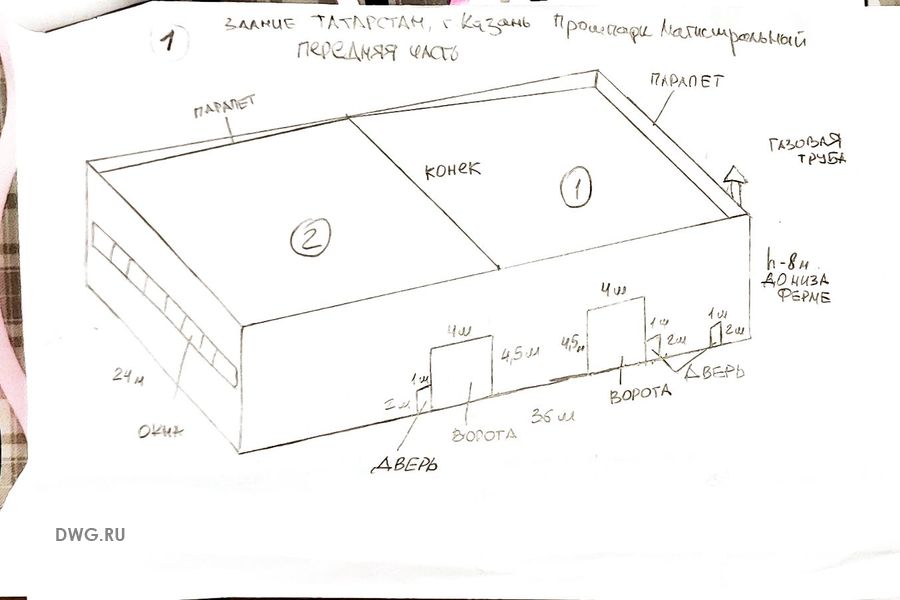 1
ЗДАНИЕ ТАТАРСТАН, г Казань Промпарк Магистральный
ПЕРЕДНЯЯ ЧАСТЬ
ПАРАПЕТ
ПАРАПЕТ
ГАЗОВАЯ
ТРУБА
КОНЕК
1
2
h-8м.
ДО НИЗА
ФЕРМЕ
4м
4,5м
1м
2м
4м
4,5м
1м
2м
1м
2м
24м
ОКНА
ДВЕРЬ
ВОРОТА
36м
ВОРОТА
ДВЕРЬ
DWG.RU